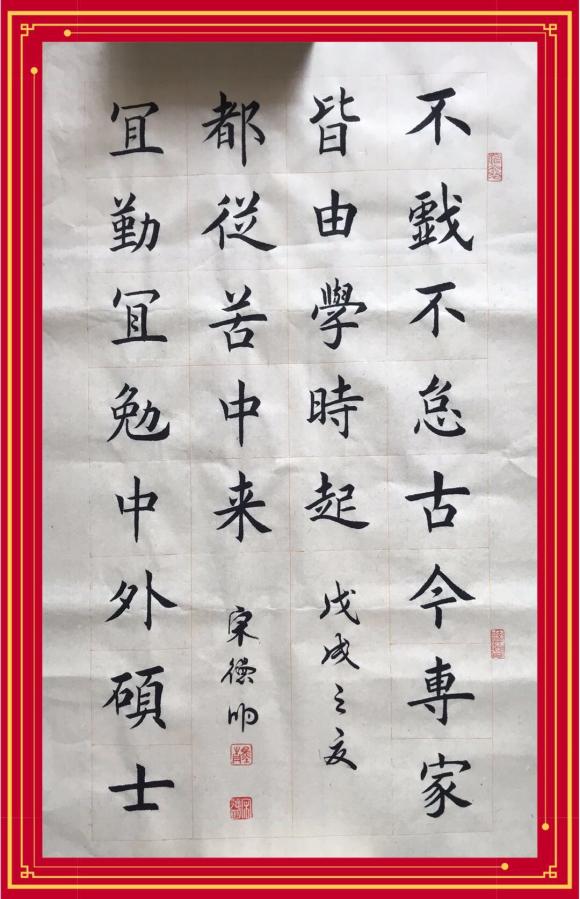 不戲不怠古今専家
皆由學時起
戊戌之夏
冝勤冝勉中外碩士
都從苦中来
宋德帅